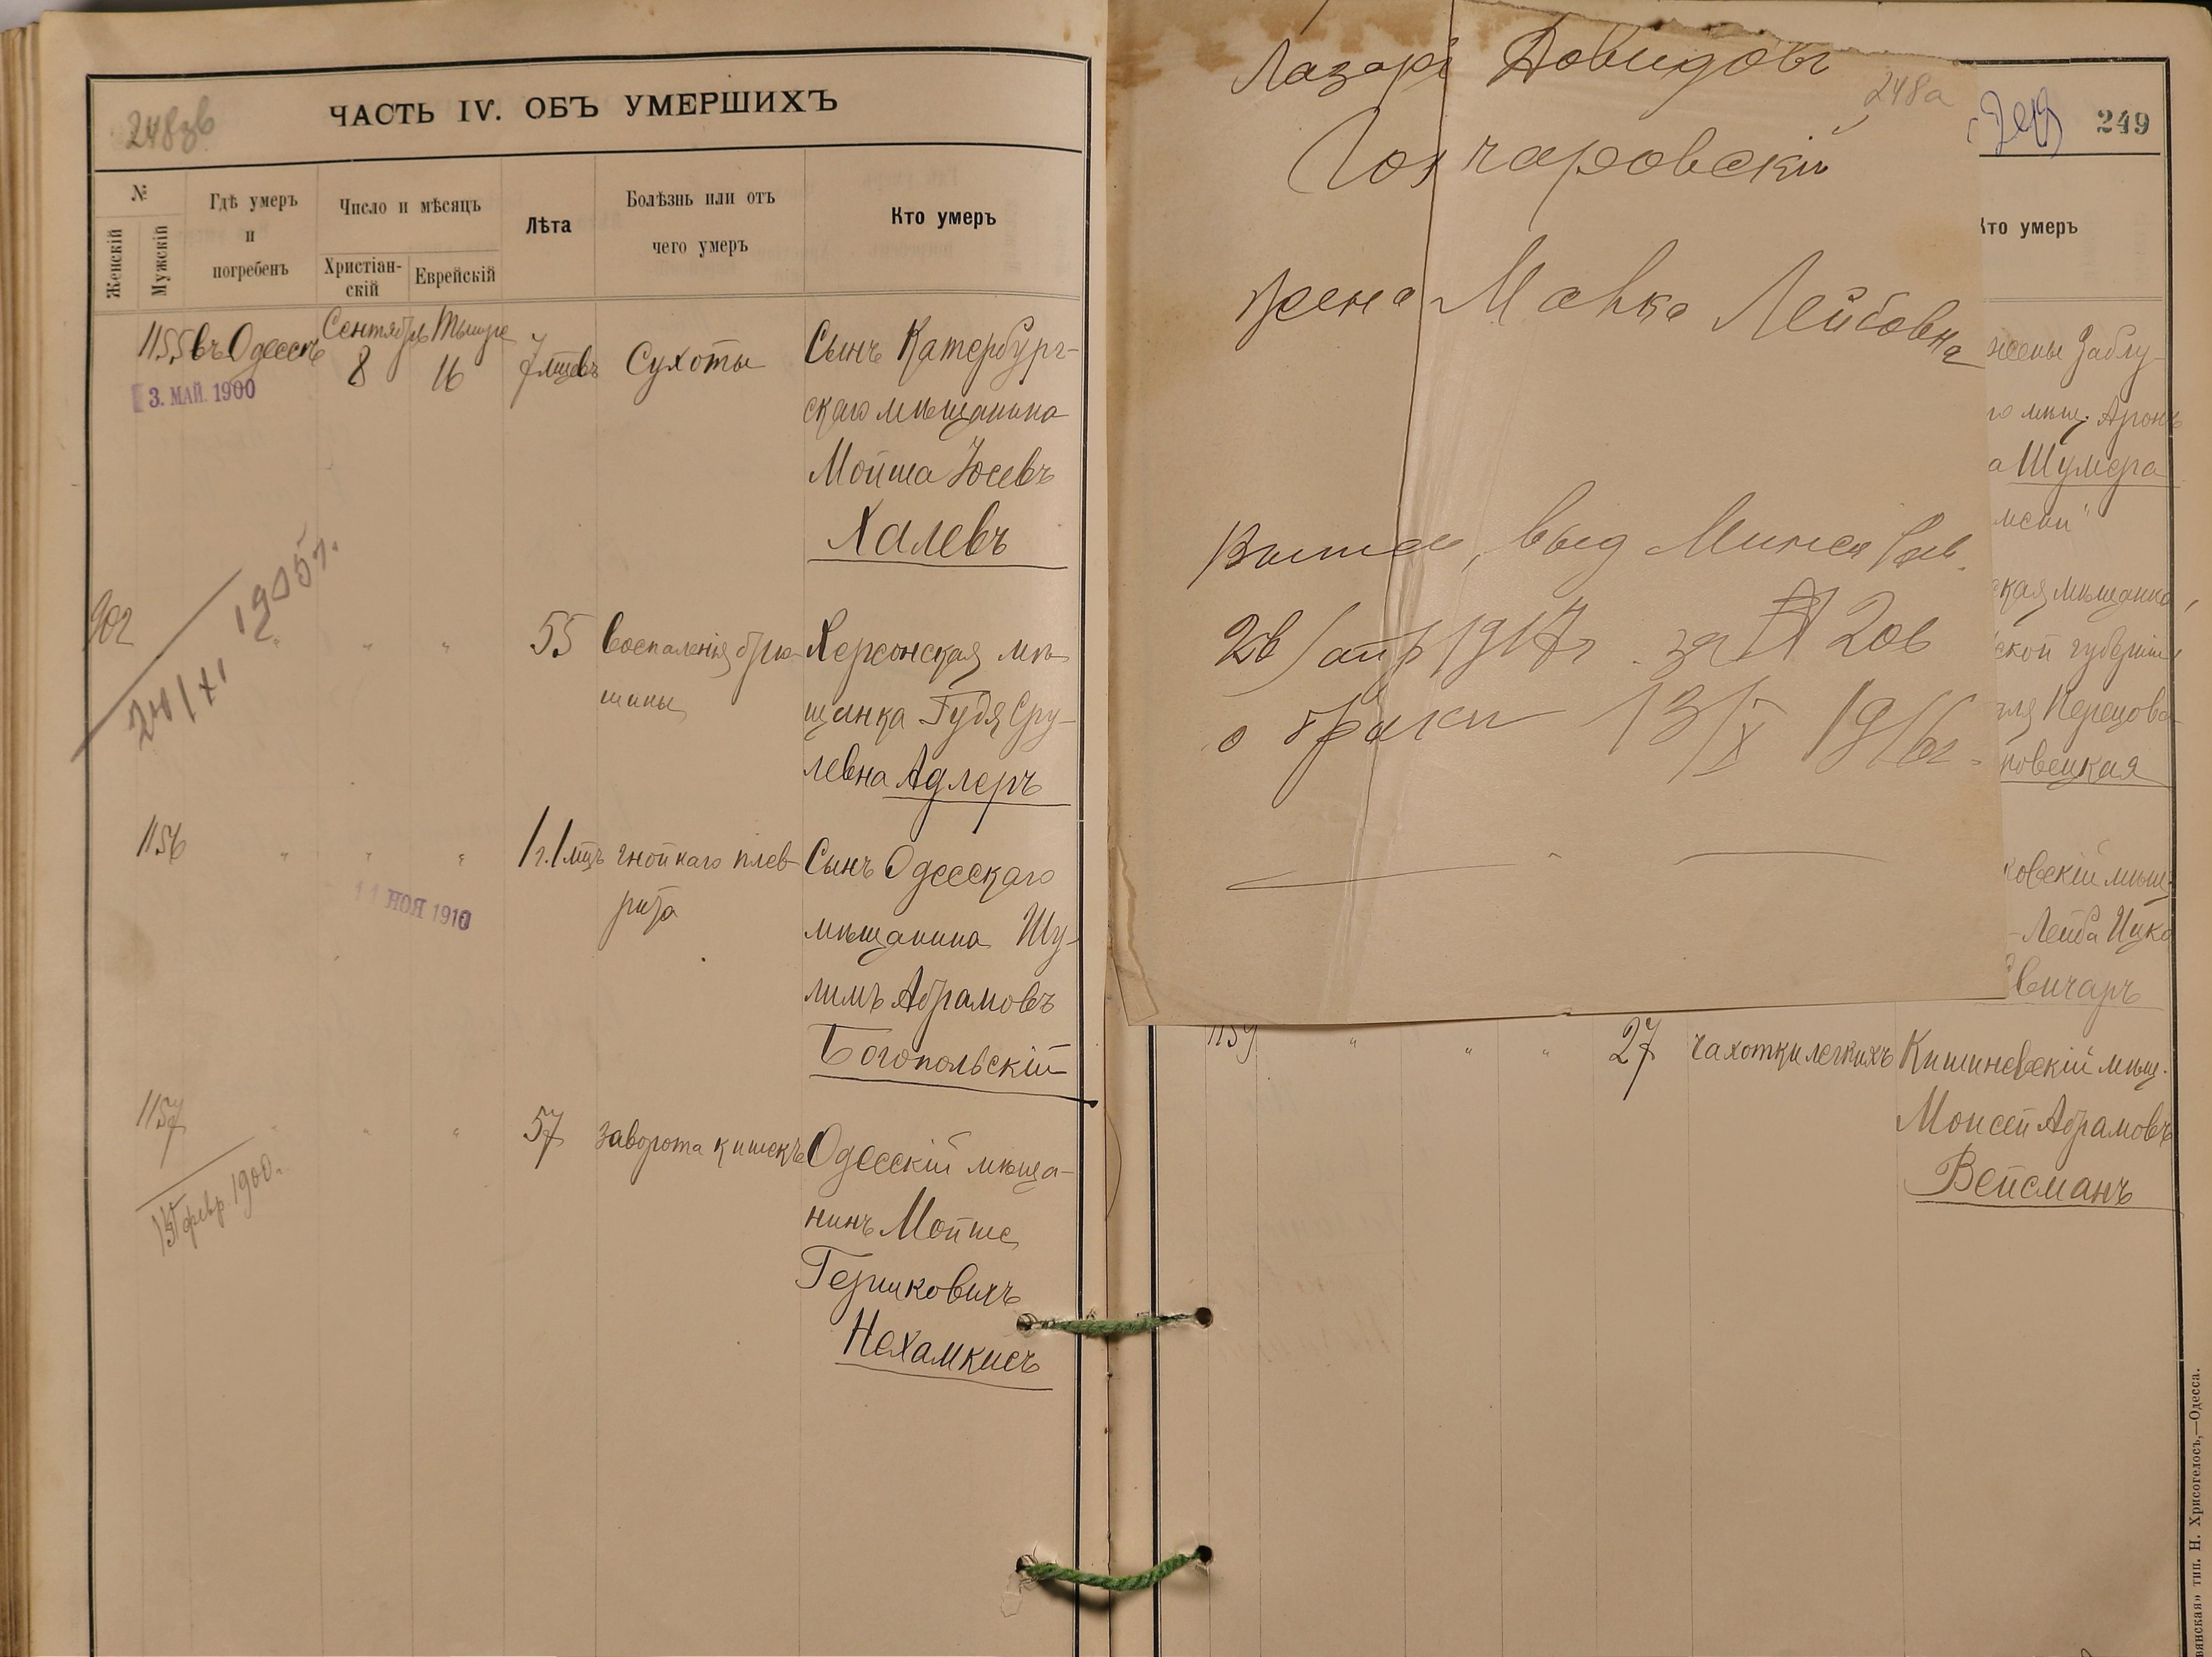 248зв
ЧАСТЬ IV. ОБЪ УМЕРШИХЪ
№
Женскій
Мужскій
Гдѣ умеръ
и
погребенъ
Число и мѣсяцъ
Христіан-
скій
Еврейскій
Лѣта
Болѣзнь или отъ
чего умеръ
Кто умеръ
1155 въ Одессѣ Сентябрь Тышре
8 16 7 мцевъ Сухоты Сынъ Катербург-
3. МАЙ. 1900
скаго мѣщанина
Мойша Іосевъ
Халевъ
902 " " " 55 воспаленія брю- Херсонская мѣ-
24/XI 1905г.
шины щанка Гудя Сру-
левна Адлеръ
1156 " " " 1 г. 1 мцъ гнойнаго плев- Сынъ Одесскаго
11 НОЯ 1910
рита мѣщанина Шу-
лимъ Абрамовъ
Богопольскій
1157 " " " 57 заворота кишекъ Одесскій мѣща-
15 февр. 1900г.
нинъ Мойше
Гершковичъ
Нехамкисъ
Лазарь Довидовъ
248а
Гончаровскій
жена Малка Лейбовна
выд Минск Рав.
26/апр 1917г. за № 206
о бракѣ 13/X 1916г.
249
Кто умеръ
жены Заблу-
го мѣщ. Аронъ
а Шумера
ская мѣщанка,
ской губерніи
Перецова
повецкая
ковскій мѣщ.
-Лейба Ицко
вичаръ
1159 " " " 27 чахотки легкихъ Кишиневскій мѣщ.
Моисей Абрамовъ
Вейсманъ
вянская» тип. Н. Хрисогелосъ,—Одесса.